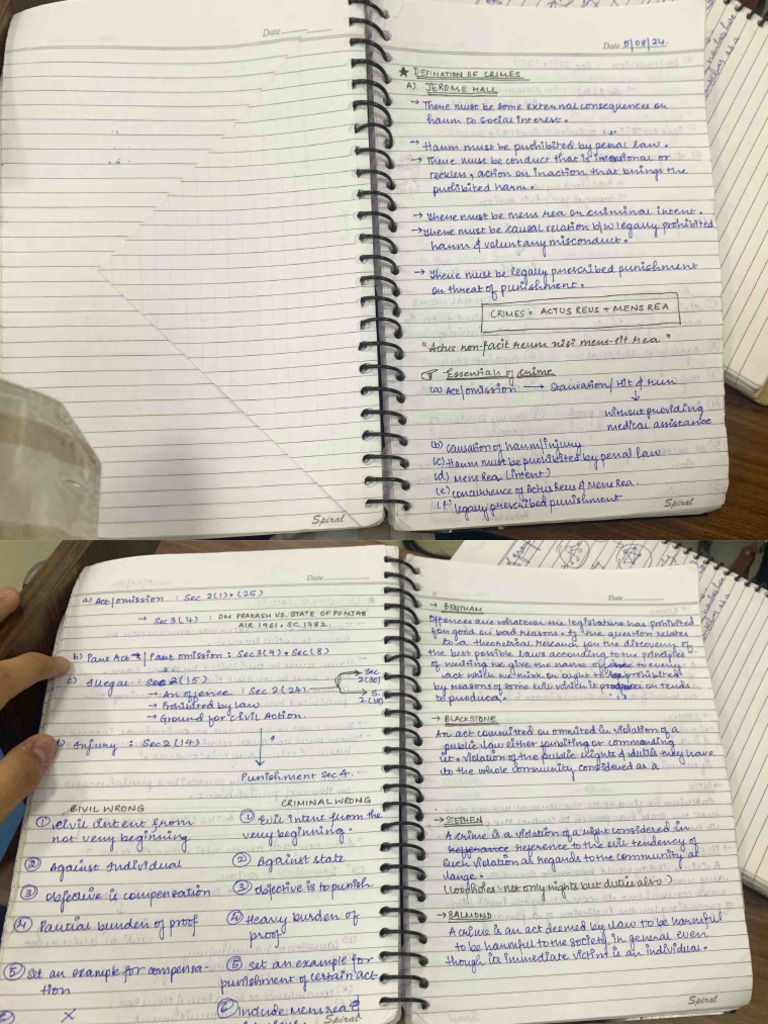 Date
Spiral
Date 5/08/24.
★ DEFINITION OF CRIMES
A) JEROME HALL
→ There must be some external consequences or
harm to social interest.
→ Harm must be prohibited by penal law.
→ There must be conduct that is intentional or
reckless, action or inaction that brings the
prohibited harm.
→ There must be mens rea or criminal intent.
→ There must be causal relation b/w legally prohibited
harm & voluntary misconduct.
→ There must be legally prescribed punishment
or threat of punishment.
CRIMES = ACTUS REUS + MENS REA
"Actus non-facit reum nisi mens-sit rea"
Essentials of Crime
(a) Act/omission → Starvation/ Hit & run
↓
without providing
medical assistance
(b) causation of harm/injury
(c) Harm must be prohibited by penal law
(d) Mens Rea (intent)
(e) concurrence of Actus Reus & Mens Rea.
(f) legally prescribed punishment
Spiral
Date
a) Act/omission : Sec 2(1) • (25)
→ Sec 3(4) : OM PRAKASH VS. STATE OF PUNJAB
AIR 1961. SC. 1782.
b) Part Act / Part omission : Sec 3(7) • Sec (8)
c) Illegal : Sec 2(15)
→ An offence : Sec 2(24) Sec 2(30) S. 2(18)
→ Prohibited by law
→ Ground for civil Action.
Injury : Sec 2(14)
Punishment Sec 4.
CIVIL WRONG
① Civil intent from
not very beginning
② Against Individual
③ objective is compensation
④ Partial burden of proof
⑤ Set an example for compensa-
tion
X
CRIMINAL WRONG
① Evil intent from the
very beginning.
② Against state
③ objective is to punish
④ Heavy burden of
proof
⑤ Set an example for
punishment of certain act
⑥ Include mens rea &
Spiral
Date
→ BENTHAM
Offences are whatever the legislature has prohibited
for good or bad reasons. If the question relates
to a theoretical research for the discovery of
the best possible laws according to the principles
of writing we give the name offence to every
act which we think or ought to be prohibited
by reasons of some evils which it produces or tends
to produce.
→ BLACKSTONE
An act committed or omitted in violation of a
public law either forbiting or commanding
it. Violation of the public rights & duties they have
to the whole community considered as a
→ STEPHEN
A crime is a violation of a right considered in
refference reference to the evil tendency of
such violation as regards to the community at
large.
(Loopholes not only rights but duties also)
→ SALMOND
A crime is an act deemed by law to be harmful
to be harmful to the society in general even
though its immediate victim is an individual.
Spiral